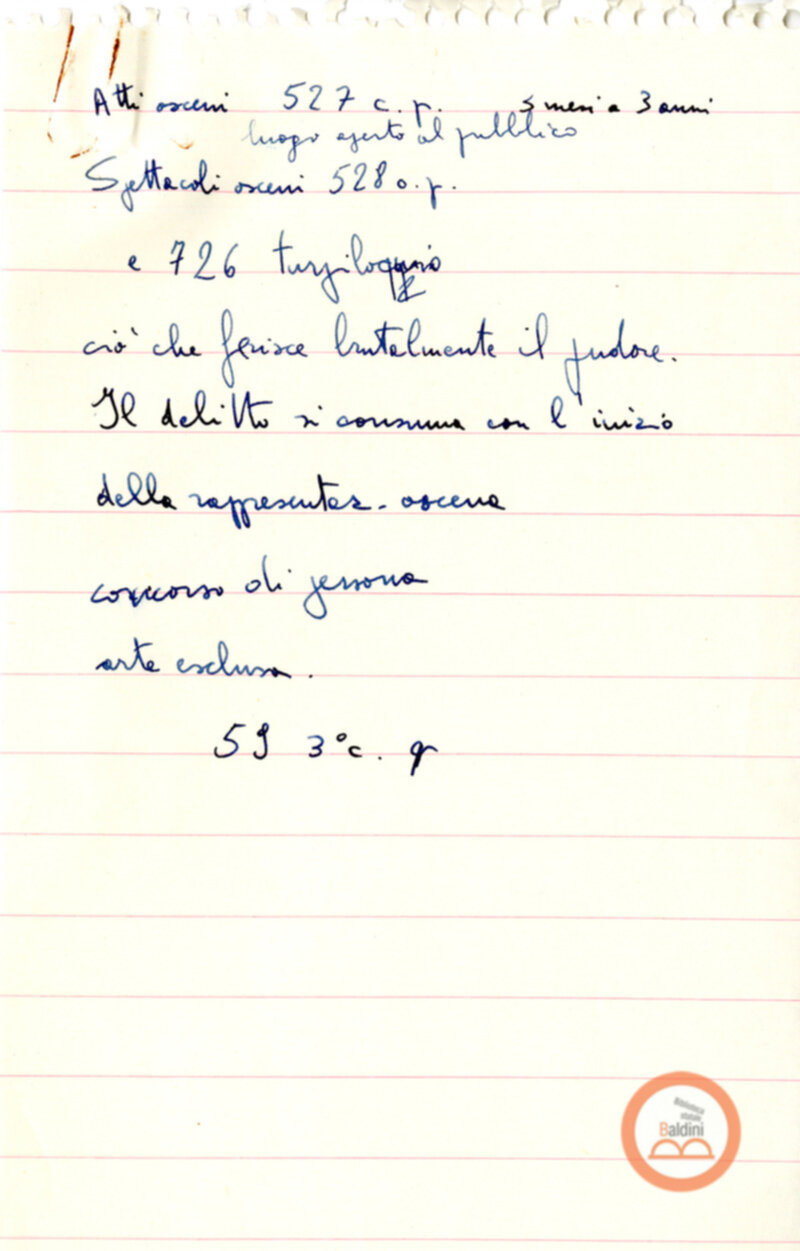 Atti osceni 527 c.p. 3 mesi a 3 anni
luogo aperto al pubblico
Spettacoli osceni 528 c.p.
e 726 turpiloquio
ciò che ferisce brutalmente il pudore.
Il delitto si consuma con l'inizio
della rappresentaz. oscena
concorso di persona
arte esclusa.
59 3° c. p
Biblioteca
statale
Baldini